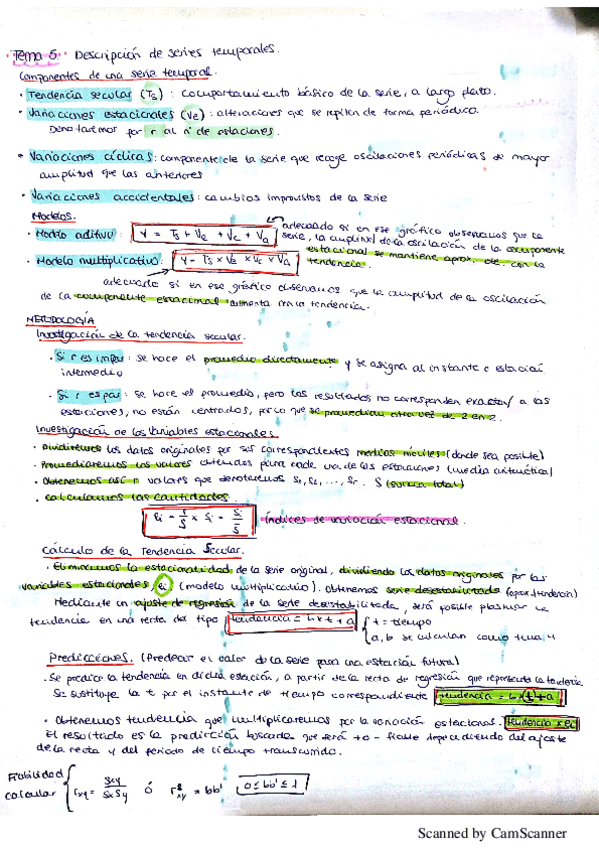 · Tema 5. Descripción de series temporales.
Componentes de una serie temporal.
· Tendencia secular (Ts): comportamiento básico de la serie, a largo plazo.
· Variaciones estacionales (Ve): alteraciones que se repiten de forma periódica.
Denotaremos por r al nº de estaciones.
· Variaciones cíclicas: componente de la serie que recoge oscilaciones periódicas de mayor
amplitud que las anteriores
· Variaciones accidentales: cambios imprevistos de la serie
Modelos.
· Modelo aditivo: Y = Ts + Ve + Vc + Va
adecuado si en ese gráfico observamos que la
serie, la amplitud de la oscilación de la componente
estacional se mantiene aprox. cte. con la
tendencia.
· Modelo multiplicativo: Y = Ts x Ve x Vc x Va
adecuado si en ese gráfico observamos que la amplitud de la oscilación
de la componente estacional aumenta con la tendencia.
METODOLOGÍA
Investigación de la tendencia secular.
· Si r es impar: se hace el promedio directamente y se asigna al instante o estación
intermedio
· Si r es par: se hace el promedio, pero los resultados no corresponden exacta/ a las
estaciones, no están centrados, por lo que se promedian otra vez de 2 en 2.
Investigación de las variables estacionales.
· Dividiremos los datos originales por sus correspondientes medias móviles (donde sea posible)
· Promediaremos los valores obtenidos para cada una de las estaciones (media aritmética)
· Obtenemos así r valores que denotaremos S1, S2, ..., Sr. S (suma total)
· Calculamos las cantidades
índices de variación estacional.
Cálculo de la Tendencia Secular.
· Eliminamos la estacionalidad de la serie original, dividiendo los datos originales por las
variables estacionales, ei (modelo multiplicativo). obtenemos serie desestabilizada
Mediante un ajuste de regresión de la serie desestabilizada, será posible plasmar la
tendencia en una recta del tipo tendencia = b x t + a { t = tiempo
a, b se calculan como tema 4
Predicciones. (Predecir el valor de la serie para una estación futura)
· Se predice la tendencia en dicha estación, a partir de la recta de regresión que representa la tendencia
Se sustituye la t por el instante de tiempo correspondiente tendencia = b x t + a
· Obtenemos tendencia que multiplicaremos por la variación estacional. tendencia x ei
El resultado es la predicción buscada que será +o- fiable dependiendo del ajuste
de la recta y del periodo de tiempo transcurrido.
Fiabilidad
calcular { rxy = Sxy / SxSy ó r²xy = bb' 0 ≤ bb' ≤ 1
Scanned by CamScanner